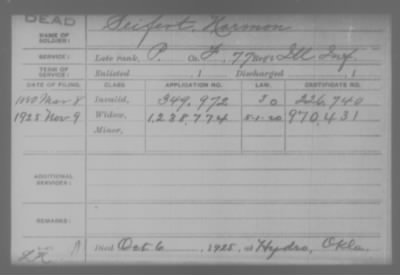 DEAD
NAME OF SOLDIER: Seifert, Harmon
SERVICE: Late rank, P. Co. F, 77 Reg't Ill Inf.
TERM OF SERVICE: Enlisted , 1 Discharged , 1
DATE OF FILING. CLASS. APPLICATION NO. LAW. CERTIFICATE NO.
1880 Mar 8 Invalid, 349,972 226,740
1925 Nov 9 Widow, 1,238,774 5-1-20 970,431
Minor,
ADDITIONAL SERVICES:
REMARKS:
Died Oct 6, 1925, at Hydro, Okla.